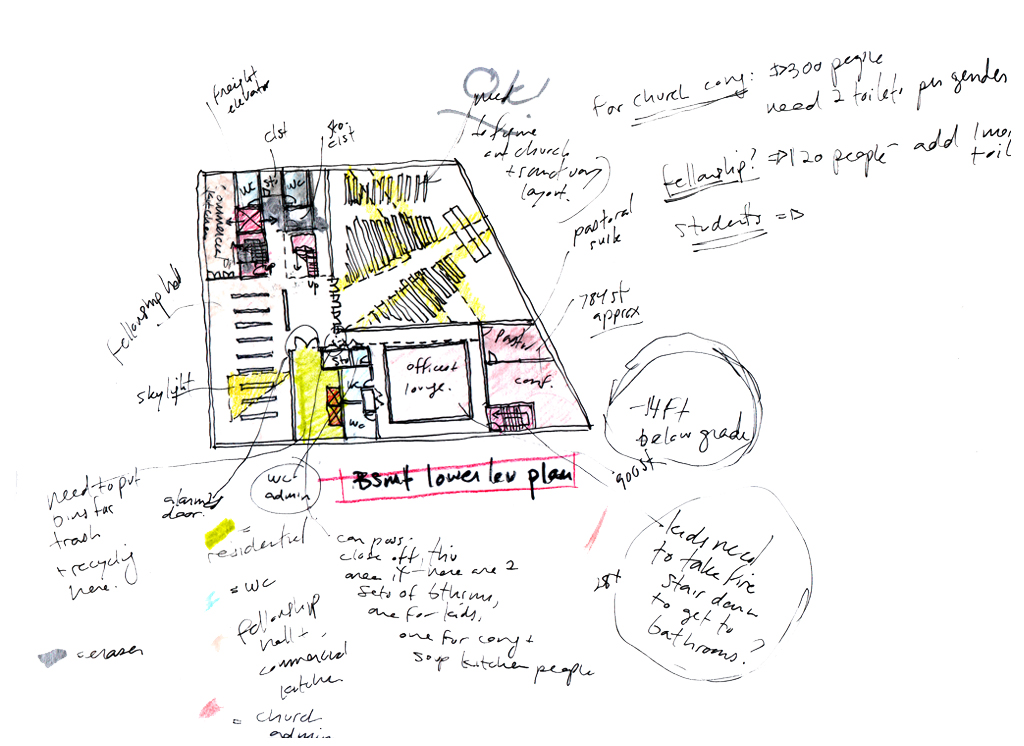 freight
elevator
clst
clst
Ok
need
to
out church
layout.
for church cong: => 300 people
need 2 toilets per gender
fellowship? => 120 people - add 1 more
toil
students =>
pastoral
suite
784 sf
approx
commercial
kitchen
WC
Sto
WC
up
up
fellowship hall
skylight
Sto
WC
WC
officest
lounge.
Past.
conf.
-14ft
below grade
900 sf
Bsmt lower lev plan
WC
admin
need to put
bins for
trash
+ recycling
here.
alarmed
door.
= residential
= WC
fellowship
hall +
commercial
kitchen
= church
admin
= eraser
can poss.
close off this
area if there are 2
sets of bthrms,
one for kids,
one for cong +
soup kitchen people
1st
- kids need
to take fire
stair down
to get to
bathrooms?